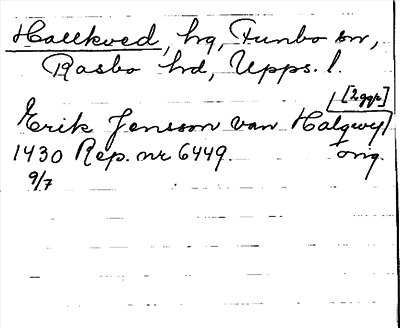 Hallkved, hg, Funbo sn,
Rasbo hd, Upps. l.
[2 ggr]
Erik Jensson van Halqwij
1430 Rep. nr 6449. orig.
9/7